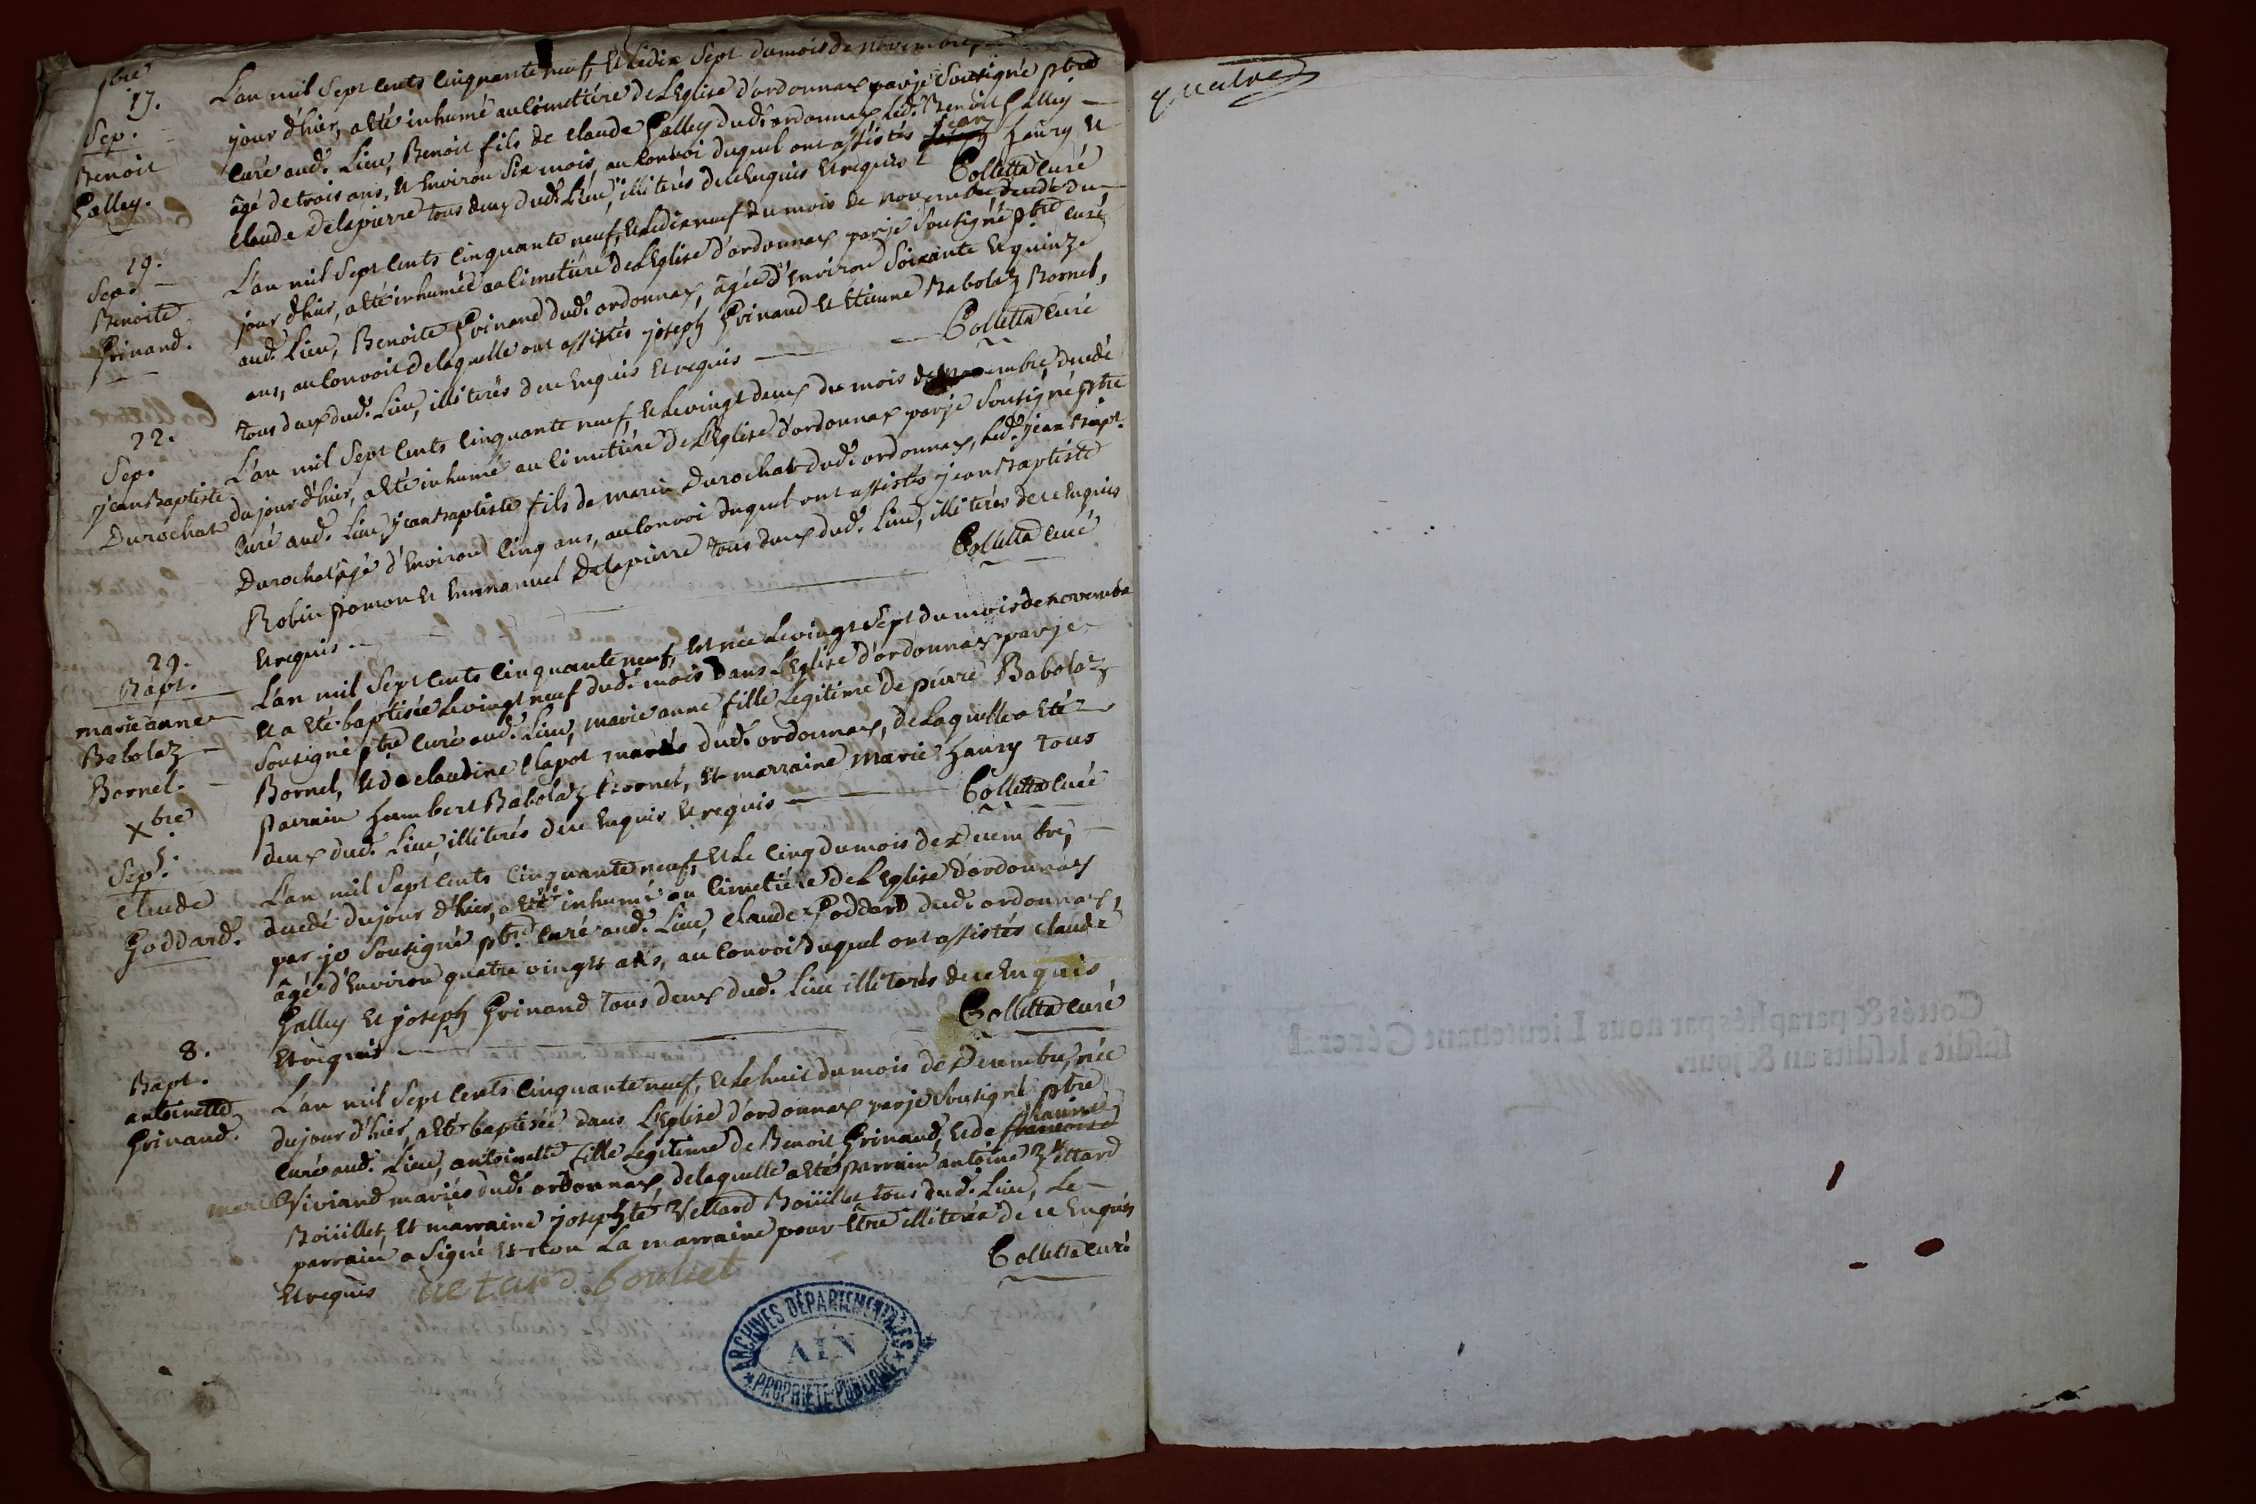 bre
17.
Sep.
Benoit
Galley.
L'an mil Sept cents cinquante neuf, et le dix Sept du mois de novembre,
jour d'hier, a été inhumé au cimetiére de L'Eglise d'ordonnax par je Sousigné pbre
curé aud. Lieu, Benoit fils de claude Galley dud. ordonnax led. Benoit Galley
âgé de trois ans, et Environ Six mois, au convoi duquel ont assistés jean haury et
claude Delapierre tous deux dud. Lieu, illiterés de ce Enquis et requis Colletta curé
19.
Sep.
Benoite
Grinand.
L'an mil Sept cents cinquante neuf, et le dix neuf du mois de novembre decedé du
jour d'hier, a été inhumée au cimetiére de L'Eglise d'ordonnax par je Sousigné pbre curé
aud. Lieu, Benoite Grinand dud. ordonnax, âgée d'Environ Soixante et quinze
ans, au convoi de laquelle ont assistés joseph Grinand et Etienne Babolaz Bornel,
tous deux dud. Lieu, illiterés de ce Enquis et requis Colletta curé
22.
Sep.
jean Baptiste
Durochat
L'an mil Sept cents cinquante neuf, et le vingt deux du mois de novembre, decedé
du jour d'hier, a été inhumé au cimetiére de L'Eglise d'ordonnax par je Sousigné pbre
curé aud. Lieu, jean Baptiste fils de marin Durochat dud. ordonnax, led. jean Bapt.
Durochat âgé d'Environ cinq ans, au convoi duquel ont assistés jean Baptiste
Robin pomon et Emmanuel Delapierre tous deux dud. Lieu, illiterés de ce Enquis
et requis. Colletta curé
29.
Bapt.
marie anne
Babolaz
Bornel.
L'an mil Sept cents cinquante neuf, est née le vingt Sept du mois de novembre
et a été baptisée le vingt neuf dud. mois dans L'Eglise d'ordonnax par je
Sousigné pbre curé aud. Lieu, marie anne fille Legitime de pierre Babolaz
Bornel, et de claudine clapot mariés dud. ordonnax, de Laquelle a été
parrain humbert Babolaz Bornel, et marraine marie haury tous
deux dud. Lieu illiterés de ce Enquis et requis Colletta curé
Xbre
5.
Sep.
claude
Goddard.
L'an mil Sept cents cinquante neuf, et le cinq du mois de Decembre,
decedé du jour d'hier, a été inhumé au cimetiére de L'Eglise d'ordonnax
par je Sousigné pbre curé aud. Lieu, claude Goddard dud. ordonnax,
âgé d'Environ quatre vingts ans, au convoi duquel ont assistés claude
Galley et joseph Grinand tous deux dud. Lieu illiterés de ce Enquis
et requis Colletta curé
8.
Bapt.
antoinette
Grinand.
L'an mil Sept cents cinquante neuf, et le huit du mois de Decembre, née
du jour d'hier, a été baptisée dans L'Eglise d'ordonnax par je Sousigné pbre
curé aud. Lieu, antoinette fille Legitime de Benoit Grinand, et de
Viviand mariés dud. ordonnax, de laquelle a été parrain antoine Vettard
Boüillet, et marraine josephte Vettard Boüillet tous dud. Lieu, Le
parrain a Signé et non La marraine pour être illiterée de ce Enquis
et requis vetard bouliet Colletta curé
ARCHIVES DÉPARTEMENTALES
AIN
PROPRIÉTÉ PUBLIQUE
quatre
Cottés & paraphés par nous Lieutenant Général
susdit, lesdits an & jour.